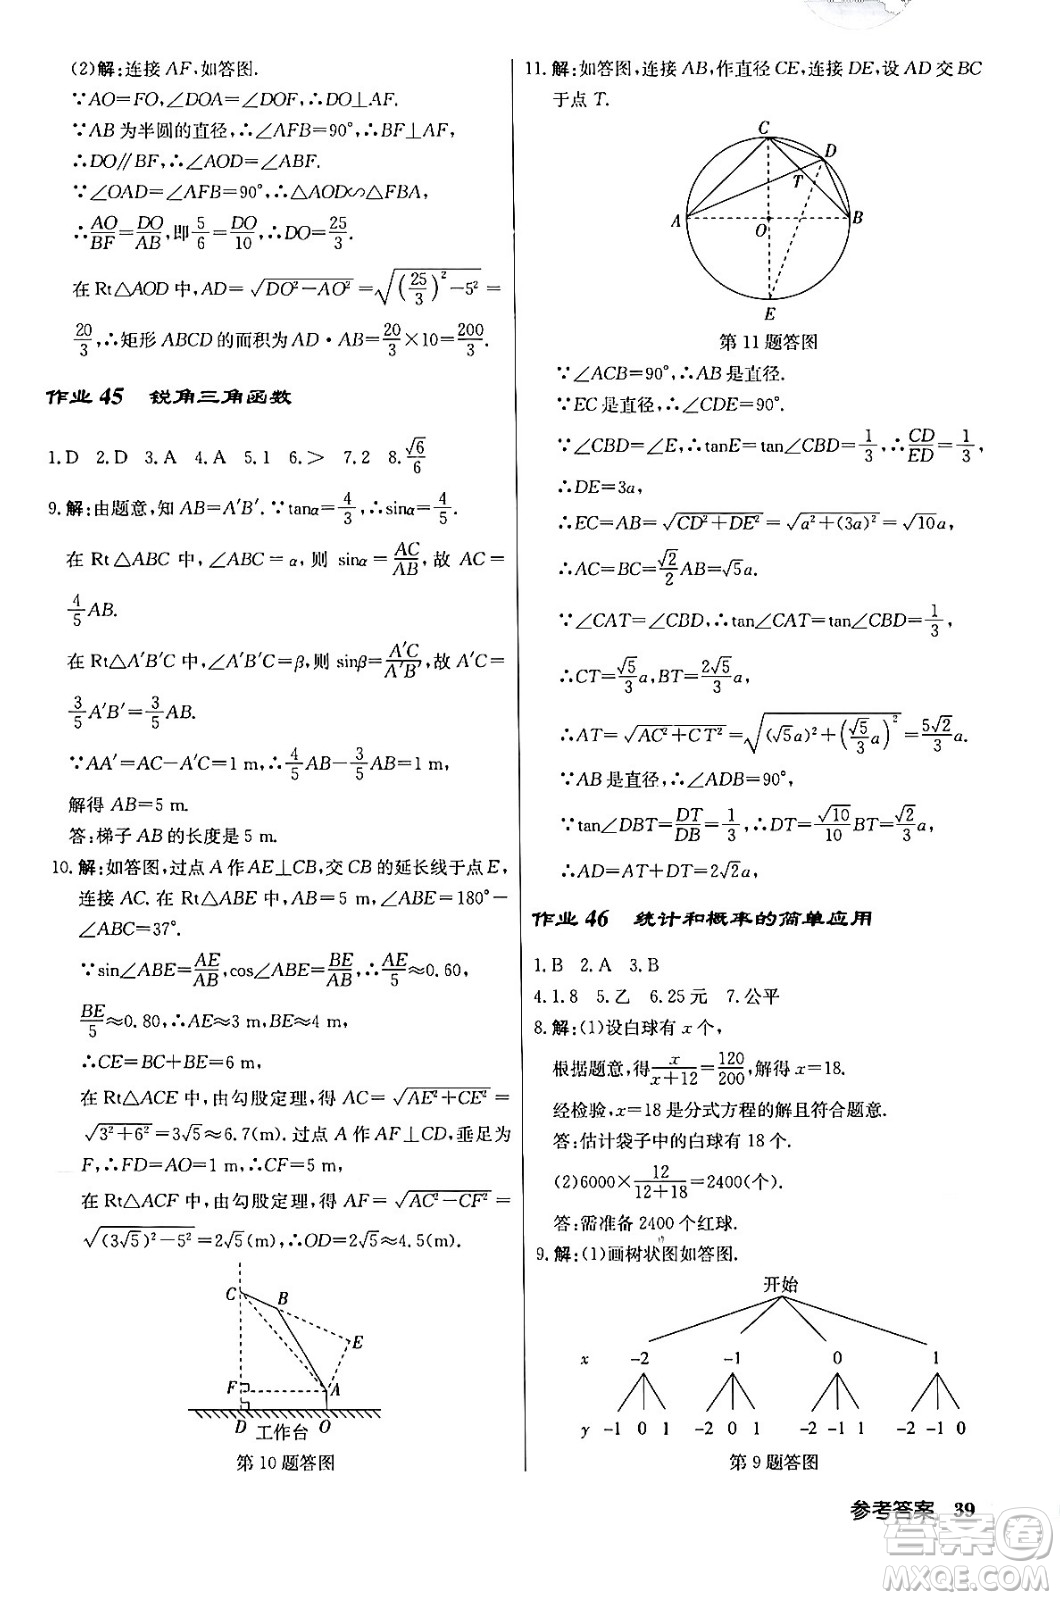 (2)解:连接 AF,如答图.
∵AO=FO,∠DOA=∠DOF,∴DO⊥AF.
∵AB 为半圆的直径,∴∠AFB=90°,∴BF⊥AF,
∴DO∥BF,∴∠AOD=∠ABF.
∵∠OAD=∠AFB=90°,∴△AOD∽△FBA,
∴AO/BF=DO/AB,即5/6=DO/10,∴DO=25/3.
在 Rt△AOD 中,AD=√(DO²-AO²)=√((25/3)²-5²)=
20/3,∴矩形 ABCD 的面积为 AD·AB=20/3×10=200/3.
作业 45 锐角三角函数
1.D 2.D 3.A 4.A 5.1 6.> 7.2 8.√6/6
9.解:由题意,知 AB=A′B′.∵tanα=4/3,∴sinα=4/5.
在 Rt△ABC 中,∠ABC=α,则 sinα=AC/AB,故 AC=
4/5AB.
在 Rt△A′B′C 中,∠A′B′C=β,则 sinβ=A′C/A′B′,故A′C=
3/5A′B′=3/5AB.
∵AA′=AC-A′C=1 m,∴4/5AB-3/5AB=1 m,
解得 AB=5 m.
答:梯子 AB 的长度是 5 m.
10.解:如答图,过点 A 作 AE⊥CB,交 CB 的延长线于点 E,
连接 AC.在 Rt△ABE 中,AB=5 m,∠ABE=180°-
∠ABC=37°.
∵sin∠ABE=AE/AB,cos∠ABE=BE/AB,∴AE/5≈0.60,
BE/5≈0.80,∴AE≈3 m,BE≈4 m,
∴CE=BC+BE=6 m.
在 Rt△ACE 中,由勾股定理,得 AC=√(AE²+CE²)=
√(3²+6²)=3√5≈6.7(m).过点 A 作 AF⊥CD,垂足为
F,∴FD=AO=1 m,∴CF=5 m,
在 Rt△ACF 中,由勾股定理,得 AF=√(AC²-CF²)=
√((3√5)²-5²)=2√5(m),∴OD=2√5≈4.5(m).
C
B
E
F
A
D 工作台 O
第 10 题答图
11.解:如答图,连接 AB,作直径 CE,连接 DE,设 AD 交 BC
于点 T.
C
D
T
A
O
B
E
第 11 题答图
∵∠ACB=90°,∴AB 是直径.
∵EC 是直径,∴∠CDE=90°.
∵∠CBD=∠E,∴tanE=tan∠CBD=1/3,∴CD/ED=1/3,
∴DE=3a,
∴EC=AB=√(CD²+DE²)=√(a²+(3a)²)=√10a,
∴AC=BC=√2/2AB=√5a.
∵∠CAT=∠CBD,∴tan∠CAT=tan∠CBD=1/3,
∴CT=√5/3a,BT=2√5/3a,
∴AT=√(AC²+CT²)=√((√5a)²+(√5/3a)²)=5√2/3a.
∵AB 是直径,∴∠ADB=90°,
∵tan∠DBT=DT/DB=1/3,∴DT=√10/10BT=√2/3a,
∴AD=AT+DT=2√2a.
作业 46 统计和概率的简单应用
1.B 2.A 3.B
4.1.8 5.乙 6.25元 7.公平
8.解:(1)设白球有 x 个,
根据题意,得x/(x+12)=120/200,解得 x=18.
经检验,x=18 是分式方程的解且符合题意.
答:估计袋子中的白球有 18 个.
(2)6000×12/(12+18)=2400(个).
答:需准备 2400 个红球.
9.解:(1)画树状图如答图.
开始
x -2 -1 0 1
y -1 0 1 -2 0 1 -2 -1 1 -2 -1 0
第 9 题答图
参考答案 39
答案圈
MXQE.COM